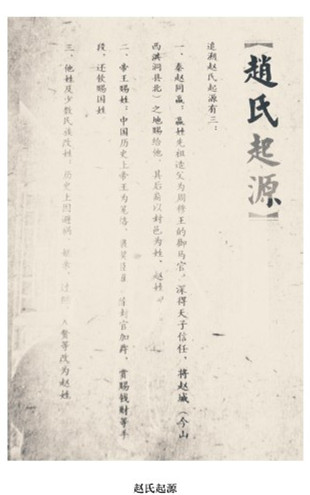 【趙氏起源】
追溯赵氏起源有三：
一、秦赵同嬴：嬴姓先祖造父为周穆王的御马官，深得天子信任，将赵城（今山
西洪洞县北）之地赐给他，其后裔以封邑为姓，赵姓
二、帝王赐姓：中国历史上帝王为笼络、除封官加爵、赏赐钱财等手
段，还使赐国姓
三、他姓及少数民族改姓，历史上因避祸、等改为赵姓
赵氏起源